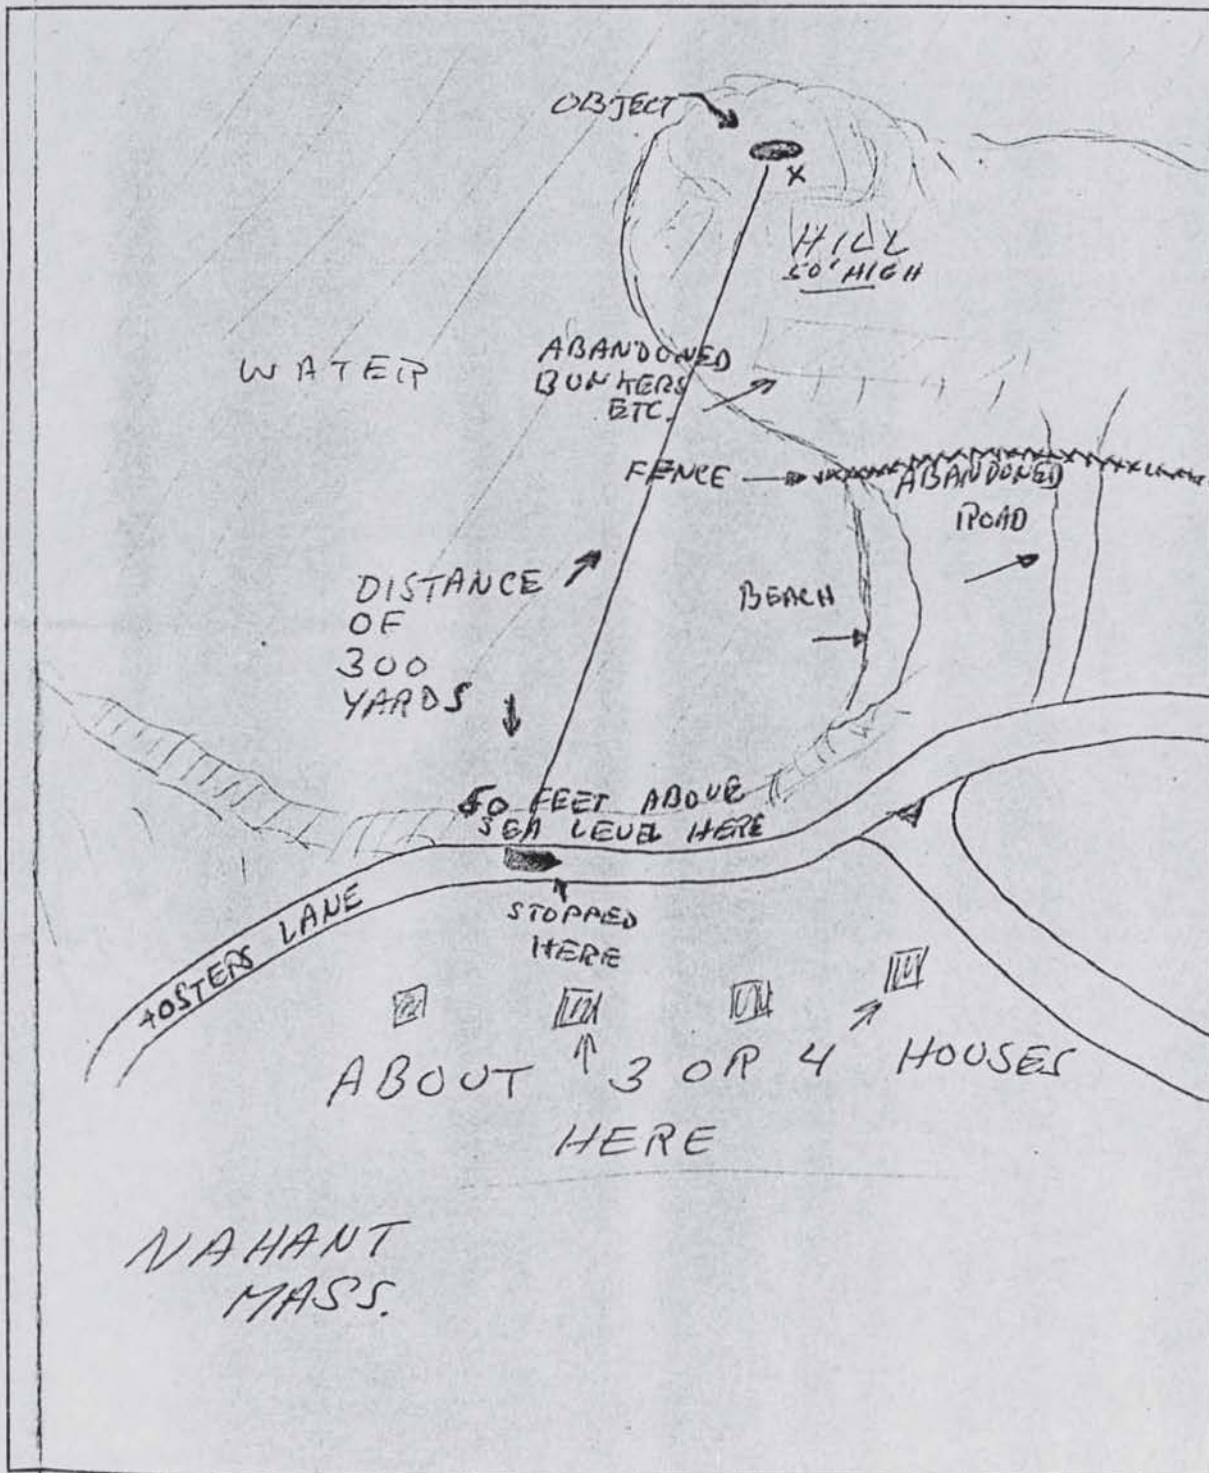 OBJECT
X
HILL
50' HIGH
WATER
ABANDONED
BUNKERS
ETC.
FENCE
ABANDONED
ROAD
DISTANCE
OF
300
YARDS
BEACH
FEET ABOVE
SEA LEVEL HERE
FOSTERS LANE
STOPPED
HERE
ABOUT 3 OR 4 HOUSES
HERE
NAHANT
MASS.